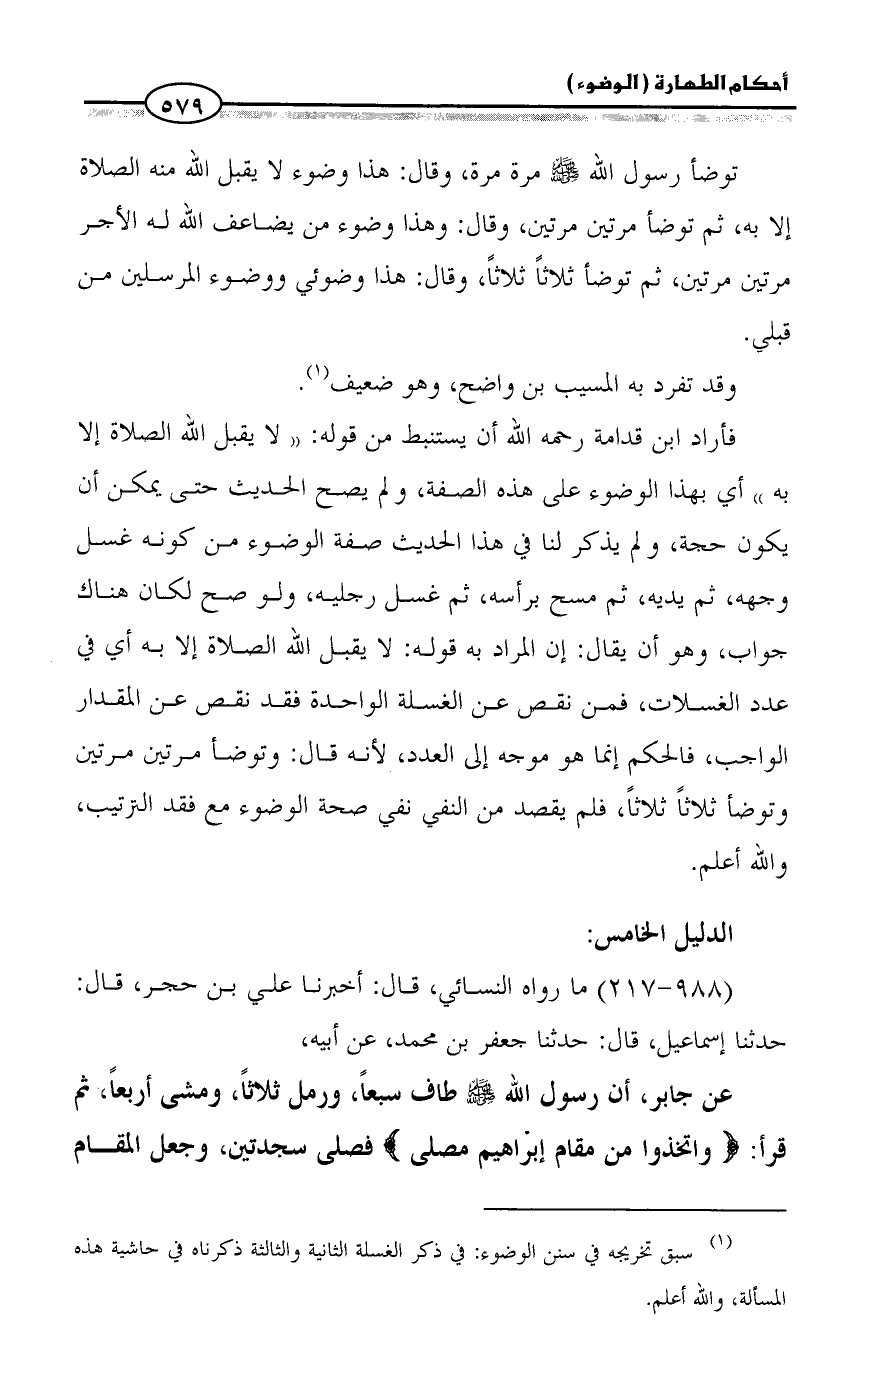 أحكام الطهارة (الوضوء)
٥٧٩
توضأ رسول الله ﷺ مرة مرة، وقال: هذا وضوء لا يقبل الله منه الصلاة
إلا به، ثم توضأ مرتين مرتين، وقال: وهذا وضوء من يضاعف الله له الأجر
مرتين مرتين، ثم توضأ ثلاثاً ثلاثاً، وقال: هذا وضوئي ووضوء المرسلين من
قبلي.
وقد تفرد به المسيب بن واضح، وهو ضعيف(١).
فأراد ابن قدامة رحمه الله أن يستنبط من قوله: (( لا يقبل الله الصلاة إلا
به )) أي بهذا الوضوء على هذه الصفة، ولم يصح الحديث حتى يمكن أن
يكون حجة، ولم يذكر لنا في هذا الحديث صفة الوضوء من كونه غسل
وجهه، ثم يديه، ثم مسح برأسه، ثم غسل رجليه، ولو صح لكان هناك
جواب، وهو أن يقال: إن المراد به قوله: لا يقبل الله الصلاة إلا به أي في
عدد الغسلات، فمن نقص عن الغسلة الواحدة فقد نقص عن المقدار
الواجب، فالحكم إنما هو موجه إلى العدد، لأنه قال: وتوضأ مرتين مرتين
وتوضأ ثلاثاً ثلاثاً، فلم يقصد من النفي نفي صحة الوضوء مع فقد الترتيب،
والله أعلم.
الدليل الخامس:
(٩٨٨-٢١٧) ما رواه النسائي، قال: أخبرنا علي بن حجر، قال:
حدثنا إسماعيل، قال: حدثنا جعفر بن محمد، عن أبيه،
عن جابر، أن رسول الله ﷺ طاف سبعاً، ورمل ثلاثاً، ومشى أربعاً، ثم
قرأ: ﴿ واتخذوا من مقام إبراهيم مصلى ﴾ فصلى سجدتين، وجعل المقام
(١) سبق تخريجه في سنن الوضوء: في ذكر الغسلة الثانية والثالثة ذكرناه في حاشية هذه
المسألة، والله أعلم.